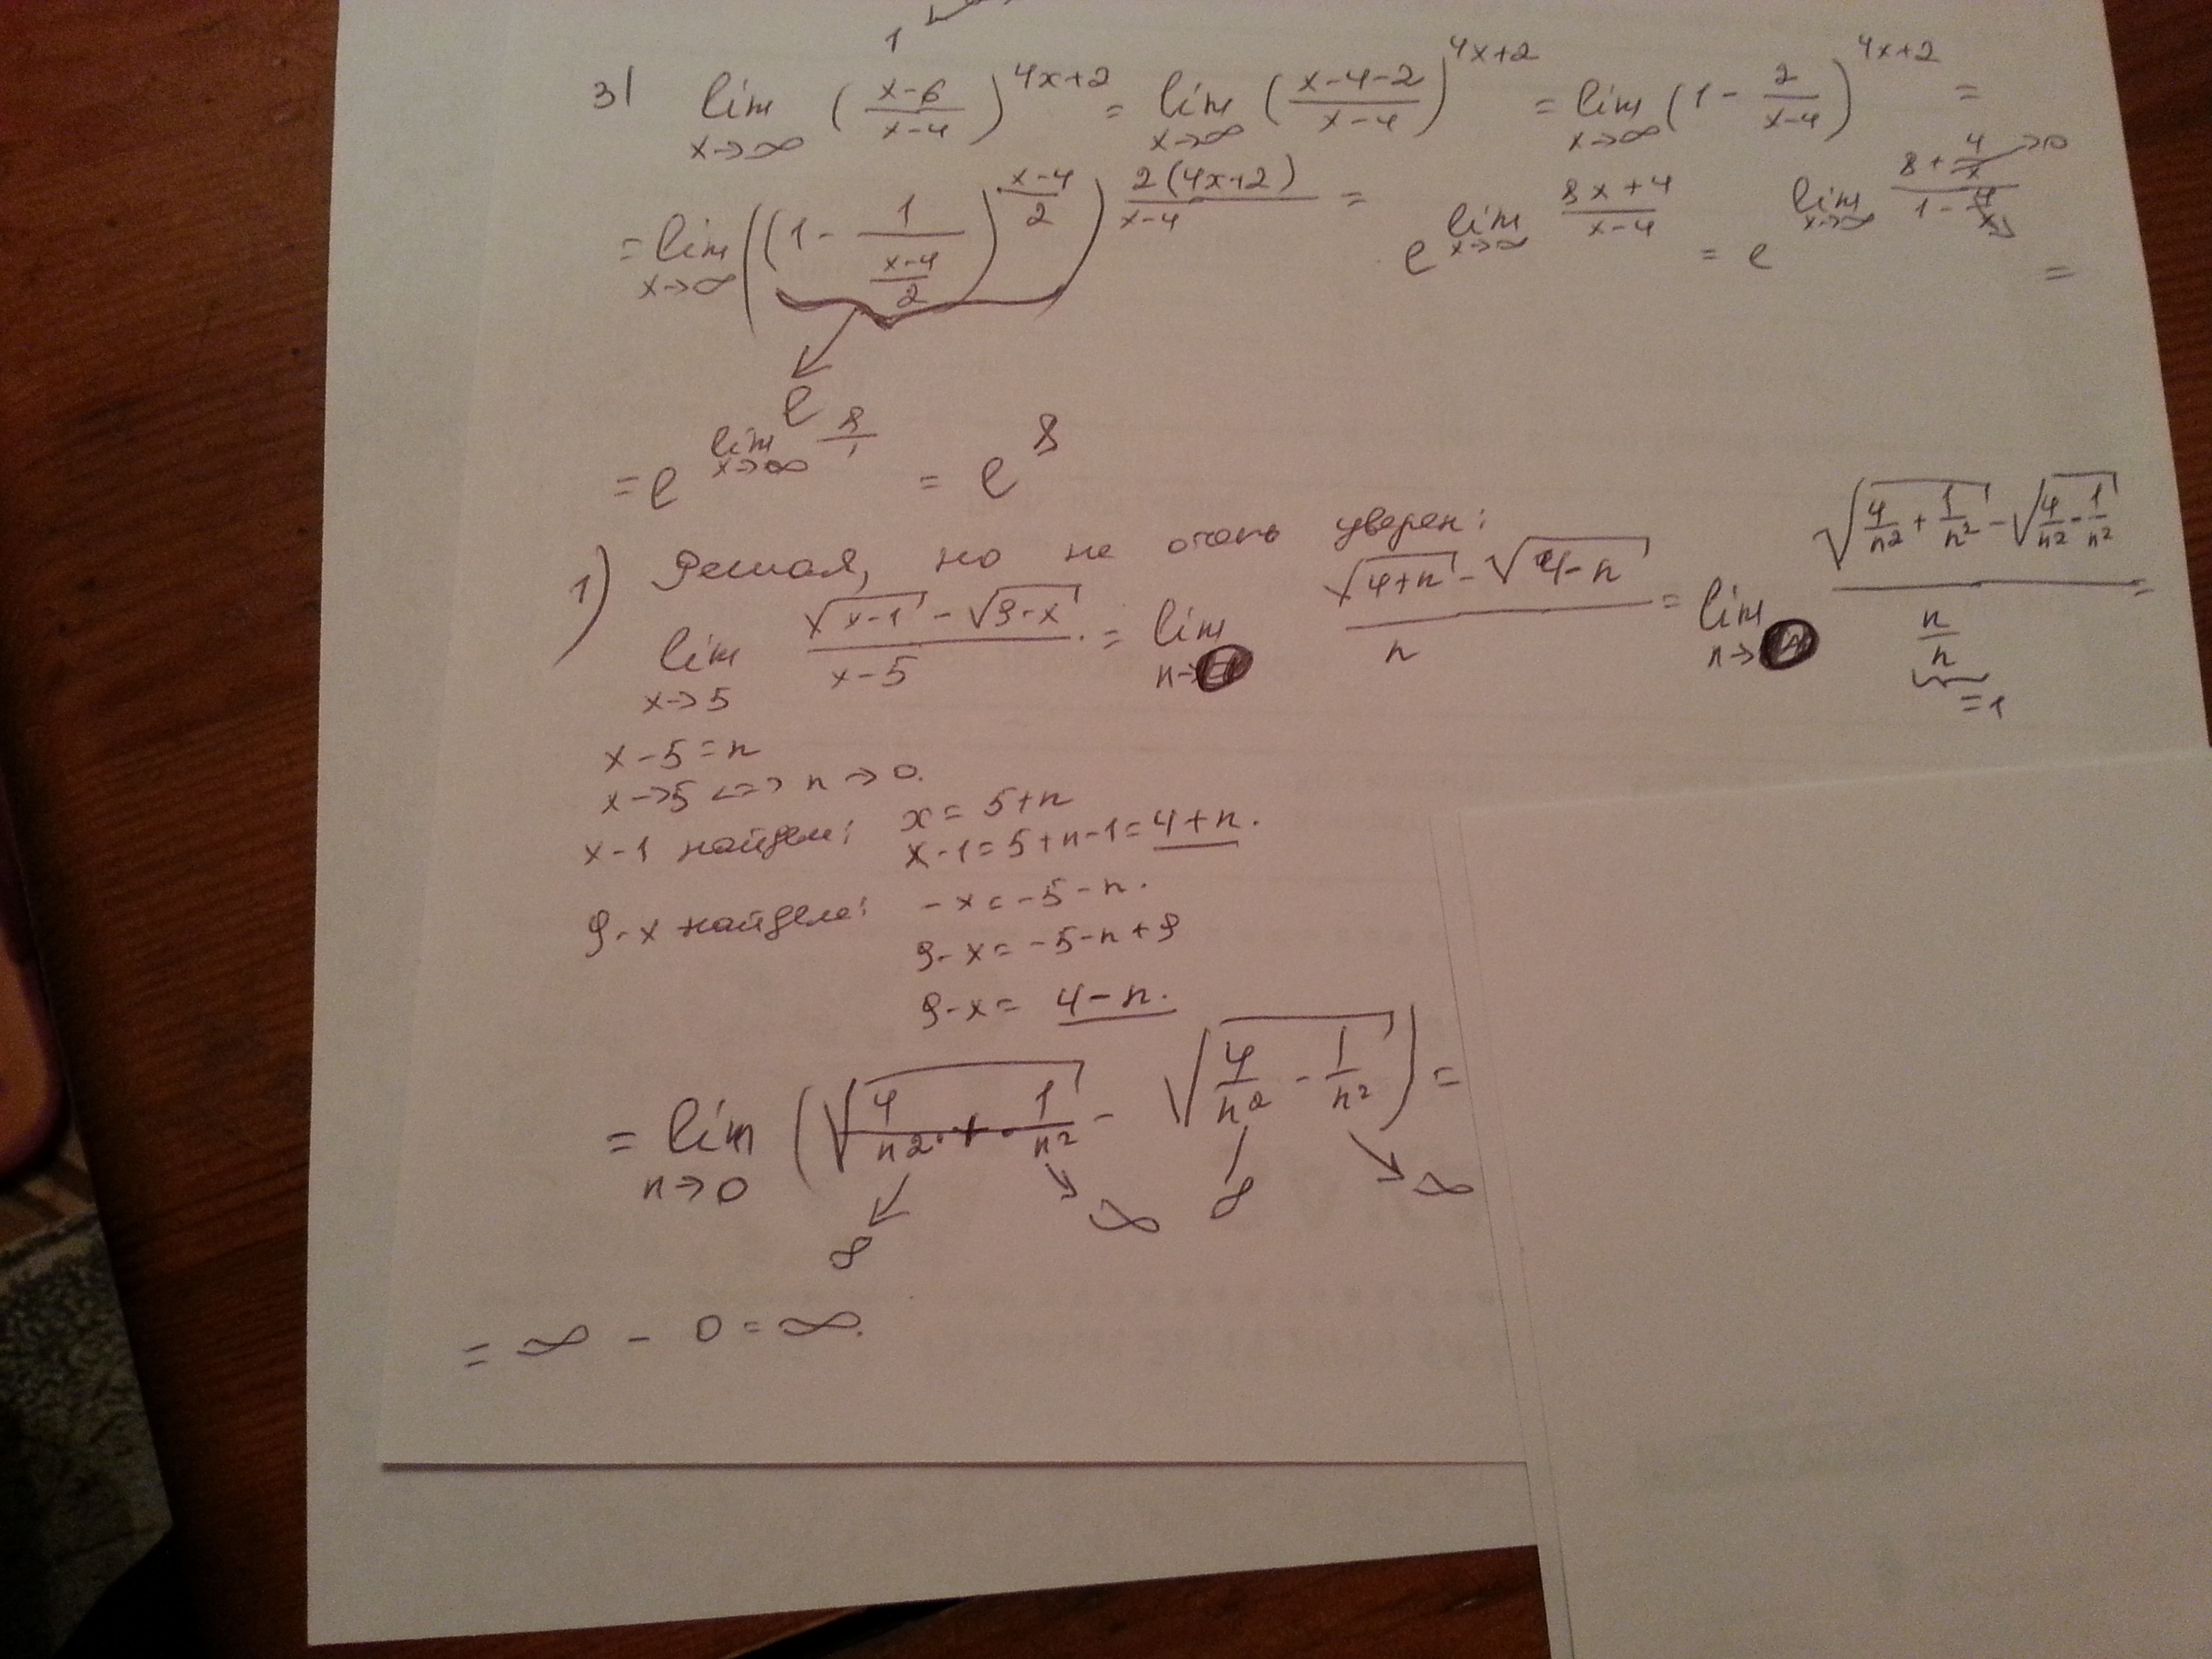 1
3) lim x→∞ ((x-6)/(x-4))^(4x+2) = lim x→∞ ((x-4-2)/(x-4))^(4x+2) = lim x→∞ (1 - 2/(x-4))^(4x+2) =
= lim x→∞ ((1 - 1/((x-4)/2))^((x-4)/2))^(2(4x+2)/(x-4)) = e^(lim x→∞ (8x+4)/(x-4)) = e^(lim x→∞ (8+4/x)/(1-4/x)) =
→0
e
= e^(lim x→∞ 8/1) = e^8
1) Решал, но не очень уверен:
lim x→5 (√(x-1) - √(9-x))/(x-5) = lim n→ (√(4+n) - √(4-n))/n = lim n→ (√(4/n² + 1/n²) - √(4/n² - 1/n²))/(n/n) =
=1
x-5=n
x→5 <=> n→0.
x-1 найдем: x=5+n
x-1=5+n-1=4+n.
9-x найдем: -x=-5-n.
9-x=-5-n+9
9-x=4-n.
= lim n→0 (√(4/n² + 1/n²) - √(4/n² - 1/n²)) =
∞ ∞ ∞ ∞
= ∞ - 0 = ∞.